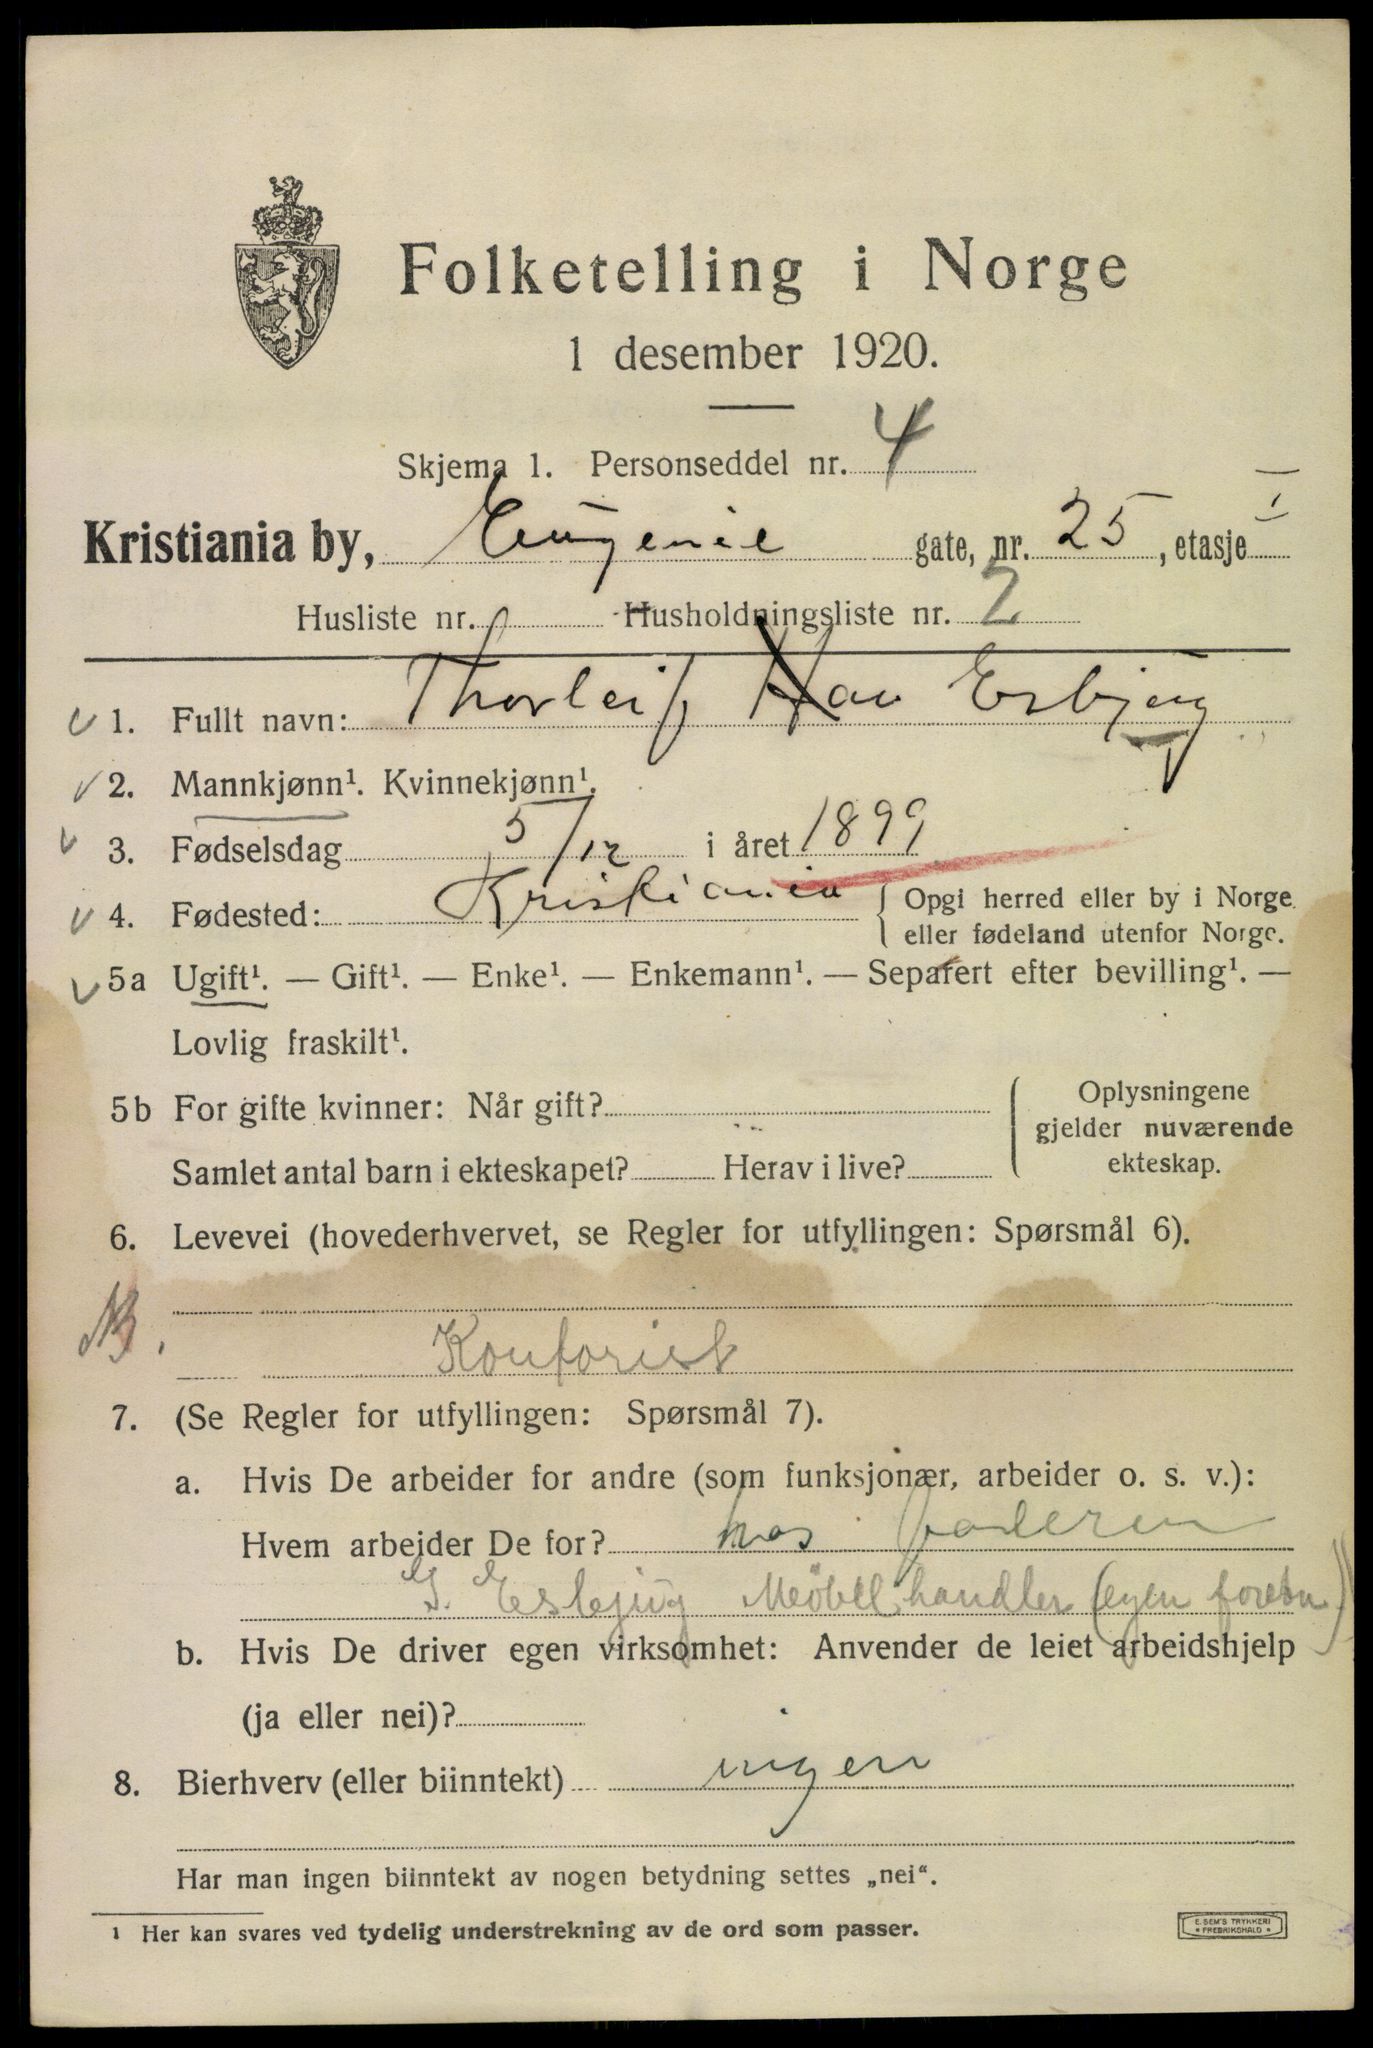 Folketelling i Norge
1 desember 1920.
Skjema 1. Personseddel nr. 4
Kristiania by, Eugenie gate, nr. 25, etasje I
Husliste nr. Husholdningsliste nr. 2
1. Fullt navn: Thorleif Esbjug
2. Mannkjønn¹. Kvinnekjønn¹.
3. Fødselsdag 5/12 i året 1899
4. Fødested: Kristiania { Opgi herred eller by i Norge
eller fødeland utenfor Norge.
5a Ugift¹. — Gift¹. — Enke¹. — Enkemann¹. — Separert efter bevilling¹. —
Lovlig fraskilt¹.
5b For gifte kvinner: Når gift?
Samlet antal barn i ekteskapet? Herav i live?
Oplysningene
gjelder nuværende
ekteskap.
6. Levevei (hovederhvervet, se Regler for utfyllingen: Spørsmål 6).
Kontorist
7. (Se Regler for utfyllingen: Spørsmål 7).
a. Hvis De arbeider for andre (som funksjonær, arbeider o. s. v.):
Hvem arbeider De for? hos faderen
Møbelhandler (egen forretn.)
b. Hvis De driver egen virksomhet: Anvender de leiet arbeidshjelp
(ja eller nei)?
8. Bierhverv (eller biinntekt) ingen
Har man ingen biinntekt av nogen betydning settes „nei“.
¹ Her kan svares ved tydelig understrekning av de ord som passer.
E. SEM'S TRYKKERI
* FREDRIKSHALD *